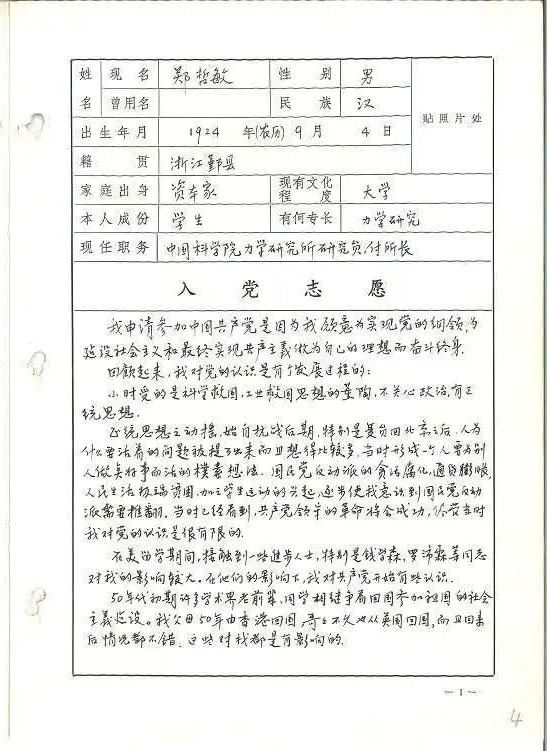 姓 现名 郑哲敏 性别 男
名 曾用名 民族 汉
出生年月 1924 年(农历) 9 月 4 日 贴照片处
籍贯 浙江鄞县
家庭出身 资本家 现有文化程度 大学
本人成份 学生 有何专长 力学研究
现任职务 中国科学院力学研究所研究员,付所长
入党志愿
我申请参加中国共产党是因为我愿意为实现党的纲领,为
建设社会主义和最终实现共产主义做为自己的理想而奋斗终身.
回顾起来,我对党的认识是有个发展过程的:
小时受的是科学救国,工业救国思想的薰陶,不关心政治,有正
统思想.
正统思想之动摇,始自抗战后期,特别是复员回北京之后.人为
什么要活着的问题被提了出来而且想得比较多.当时形成一个人要为别
人做点好事而活的模素想法.国民党反动派的贪污腐化,通货膨胀,
人民生活极端贫困,加之学生运动的兴起,逐步使我意识到国民党反动
派需要推翻.当时已经看到,共产党领导的革命将会成功,尽管当时
我对党的认识是很有限的.
在美留学期间,接触到一些进步人士,特别是钱学森,罗沛霖等同志
对我的影响较大.在他们的影响下,我对共产党开始有些认识.
50年代初期许多学术界老前辈,同学相继争着回国参加祖国的社会
主义建设。我父母50年由香港回国,哥哥不久也从英国回国,而且回来
后情况都不错.这些对我都是有影响的.
— 1 —
4